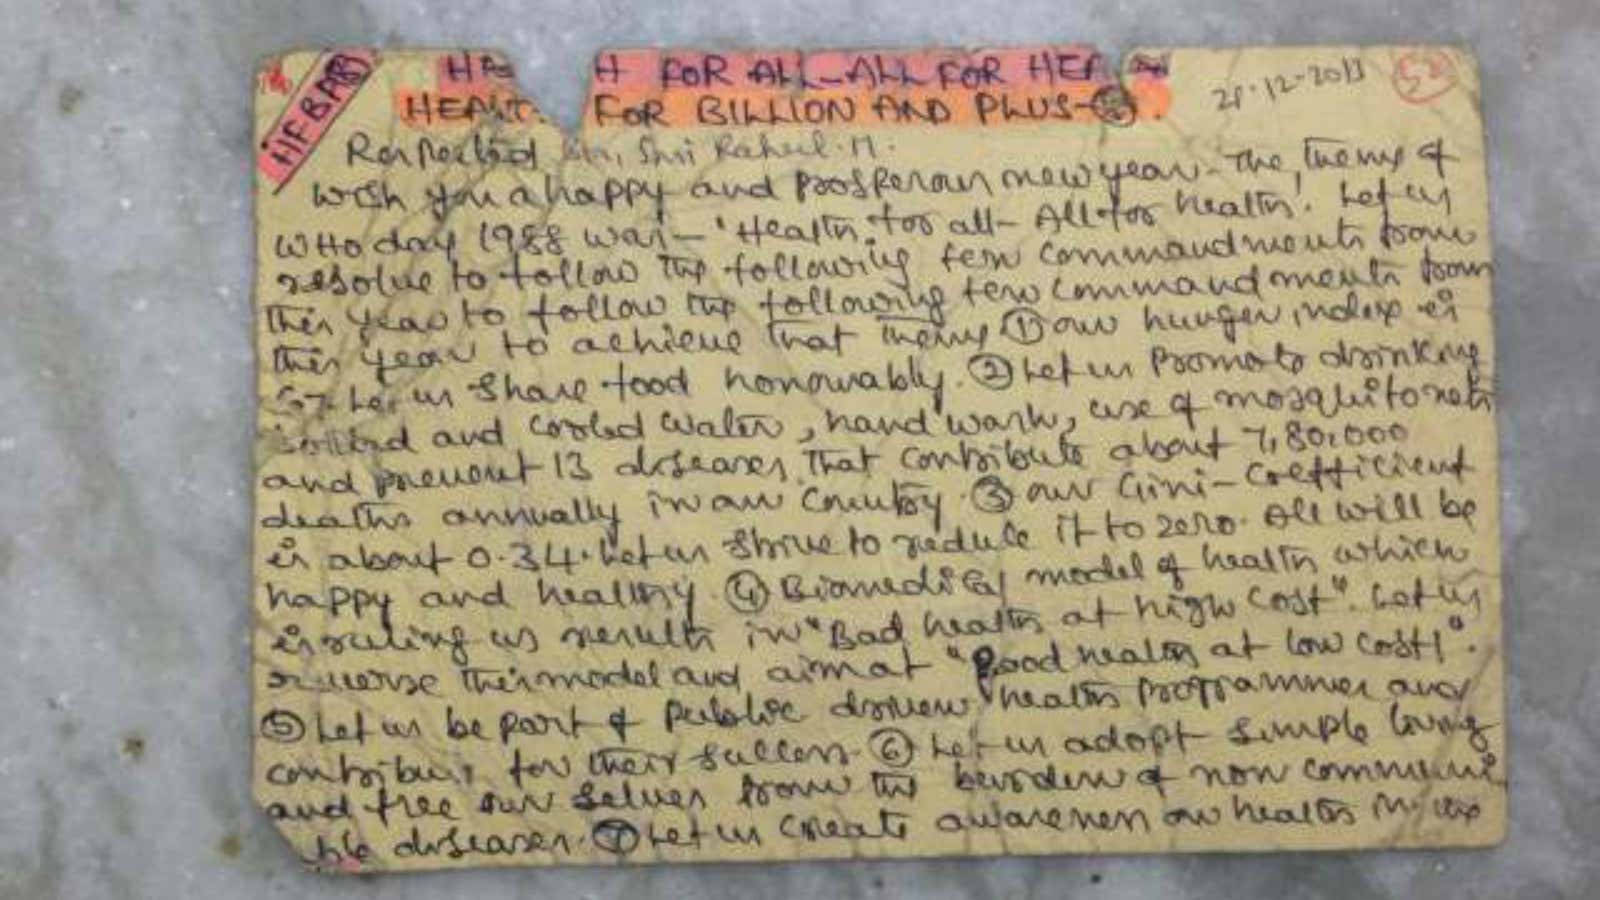 HFBAP
HE H FOR ALL-ALL FOR HEA
HEALT FOR BILLION AND PLUS-
52
Respected Sir, Shri Rahul. M.
Wish you a happy and prosperous new year. The theme of
WHO day 1988 was - 'Health for all - All for health'. Let us
resolve to follow the following few commandments from
this year to follow the following few commandments from
this year to achieve that theme ① our hunger index is
67. Let us share food honourably. ② Let us promote drinking
boiled and cooled water, hand wash, use of mosquito nets
and prevent 13 diseases that contribute about 7,80,000
deaths annually in our country. ③ our Gini-Coefficient
is about 0.34. Let us strive to reduce it to zero. All will be
happy and healthy. ④ Biomedical model of health which
is ruling us results in "Bad health at high cost". Let us
reverse this model and aim at "Good health at low cost!".
⑤ Let us be part of public driven health programmes and
contribute for their success. ⑥ Let us adopt simple living
and free our selves from the burden of non communi
ble diseases. ⑦ Let us create awareness on health in